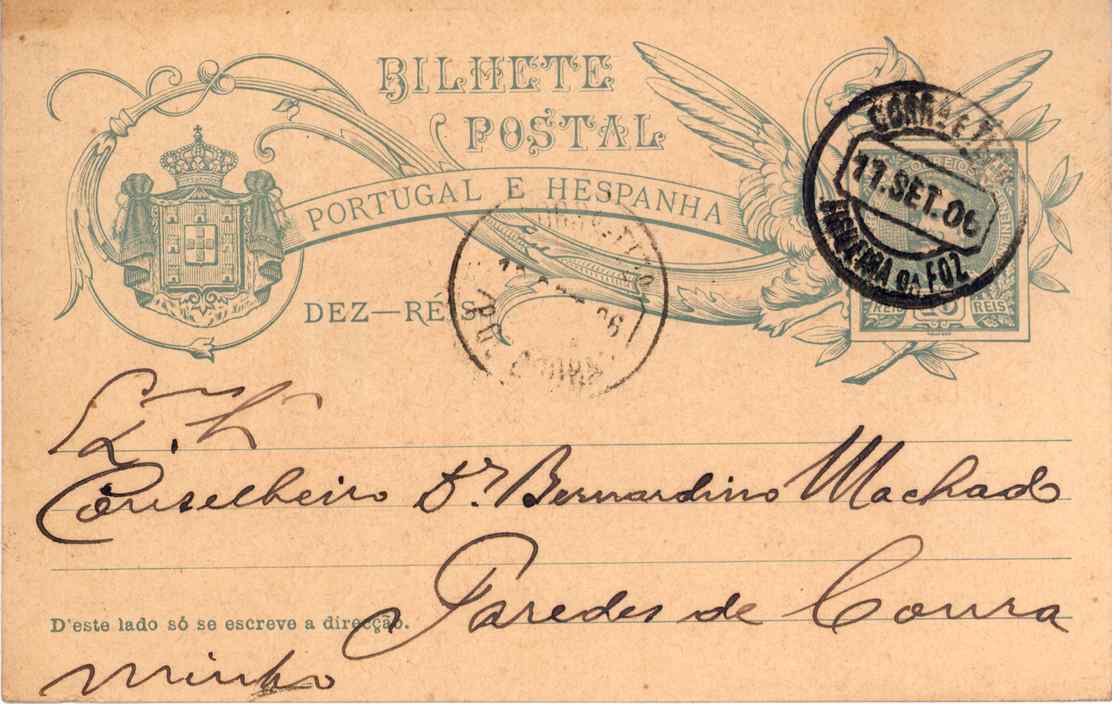 BILHETE
POSTAL
PORTUGAL E HESPANHA
DEZ—RÉIS
CORREIOS
REIS 10 REIS
11.SET.06
FIGUEIRA DA FOZ
06
Conselheiro Dr Bernardino Machado
Paredes de Coura
D'este lado só se escreve a direcção.
Minho